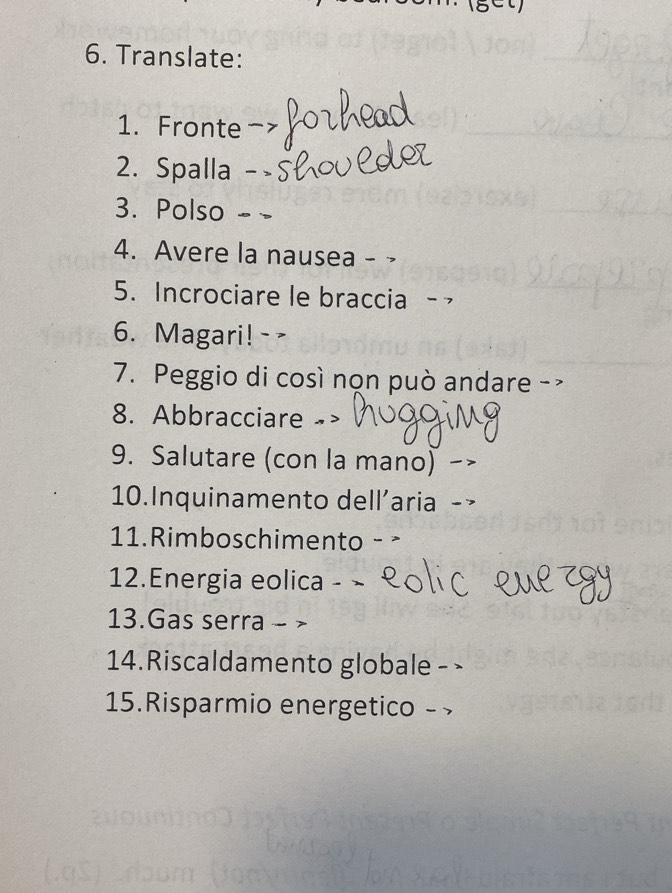 (get)
6. Translate:
1. Fronte -> forhead
2. Spalla --> shoulder
3. Polso -->
4. Avere la nausea -->
5. Incrociare le braccia -->
6. Magari! -->
7. Peggio di così non può andare -->
8. Abbracciare --> hugging
9. Salutare (con la mano) -->
10.Inquinamento dell'aria -->
11.Rimboschimento -->
12.Energia eolica --> eolic energy
13.Gas serra -->
14.Riscaldamento globale -->
15.Risparmio energetico -->